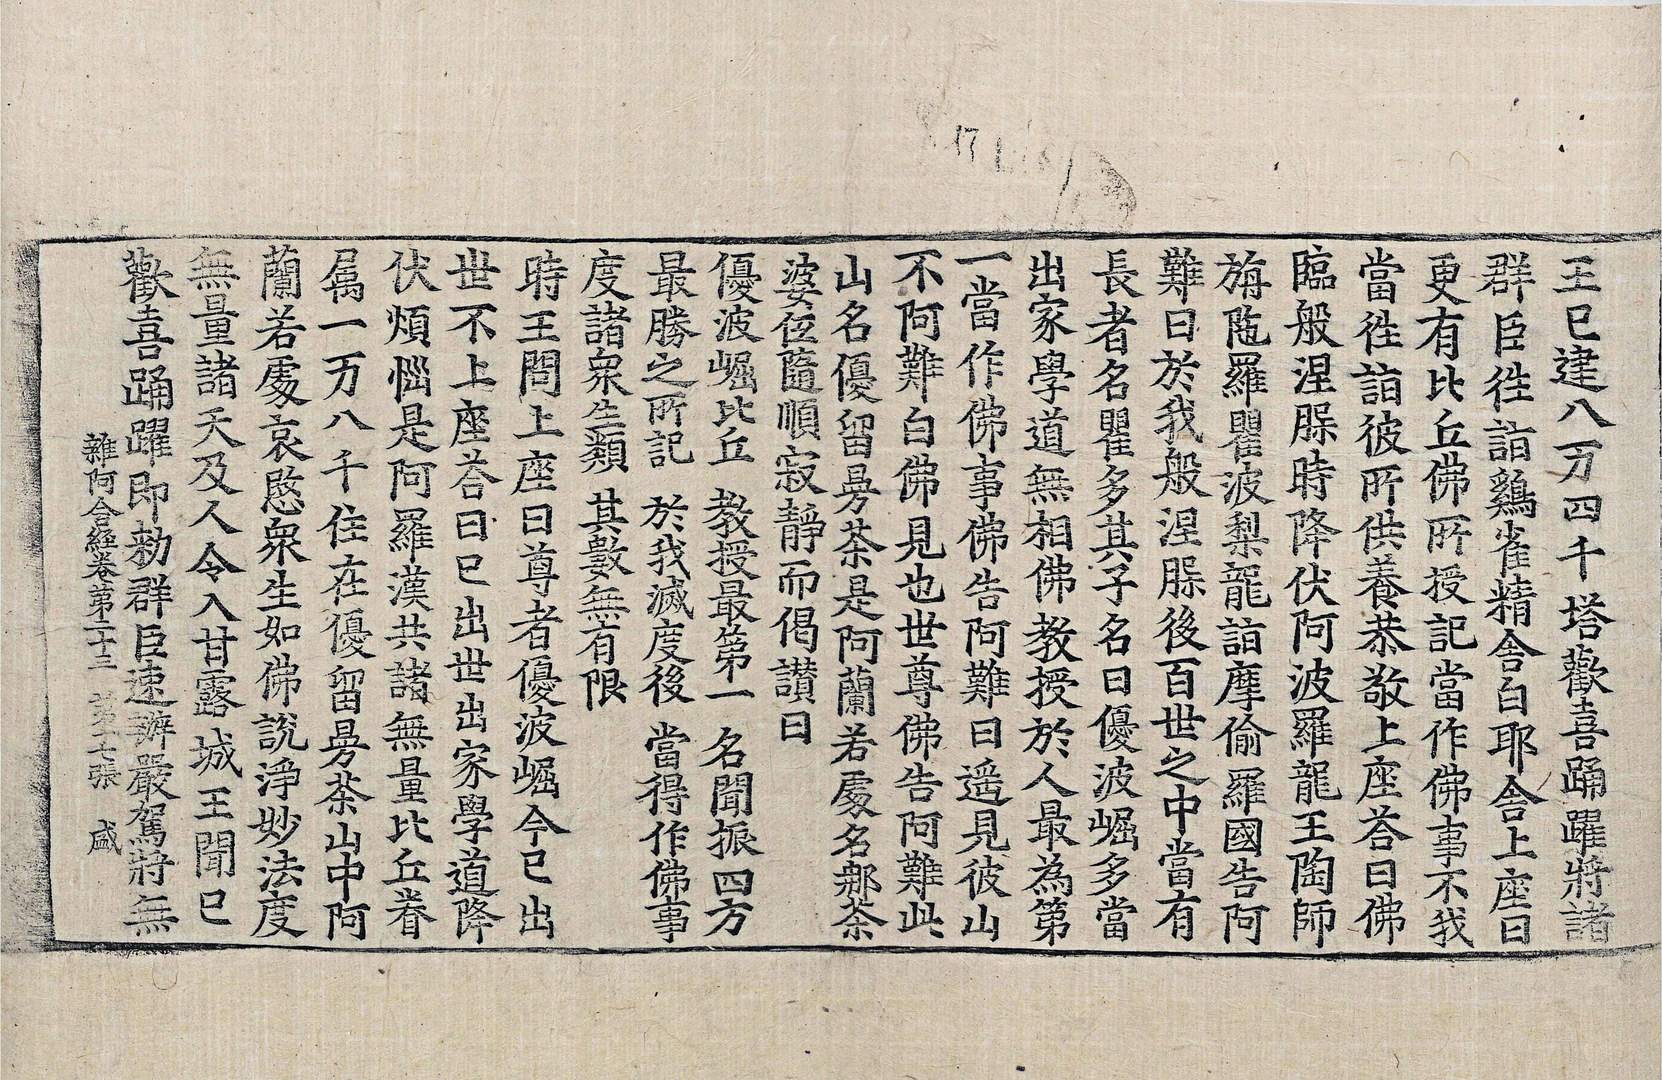 王已建八万四千塔歡喜踊躍將諸
群臣徃詣鷄雀精舎白耶舎上座曰
更有比丘佛所授記當作佛事不我
當徃詣彼所供養恭敬上座荅曰佛
臨般涅脲時降伏阿波羅龍王陶師
旃陁羅瞿波梨龍詣摩偷羅國告阿
難曰於我般涅脲後百世之中當有
長者名瞿多其子名曰優波崛多當
出家學道無相佛教授於人最為第
一當作佛事佛告阿難曰遥見彼山
不阿難白佛見也世尊佛告阿難此
山名優留曼荼是阿蘭若處名那荼
婆低隨順寂靜而偈讃曰
優波崛比丘　教授最第一　名聞振四方
最勝之所記　於我滅度後　當得作佛事
度諸衆生類　其數無有限
時王問上座曰尊者優波崛今已出
世不上座荅曰已出世出家學道降
伏煩惱是阿羅漢共諸無量比丘眷
属一万八千住在優留曼荼山中阿
蘭若處哀愍衆生如佛說淨妙法度
無量諸天及人令入甘露城王聞已
歡喜踊躍即勑群臣速辦嚴駕將無
雜阿含經卷第二十三　第二十七張　盛
17